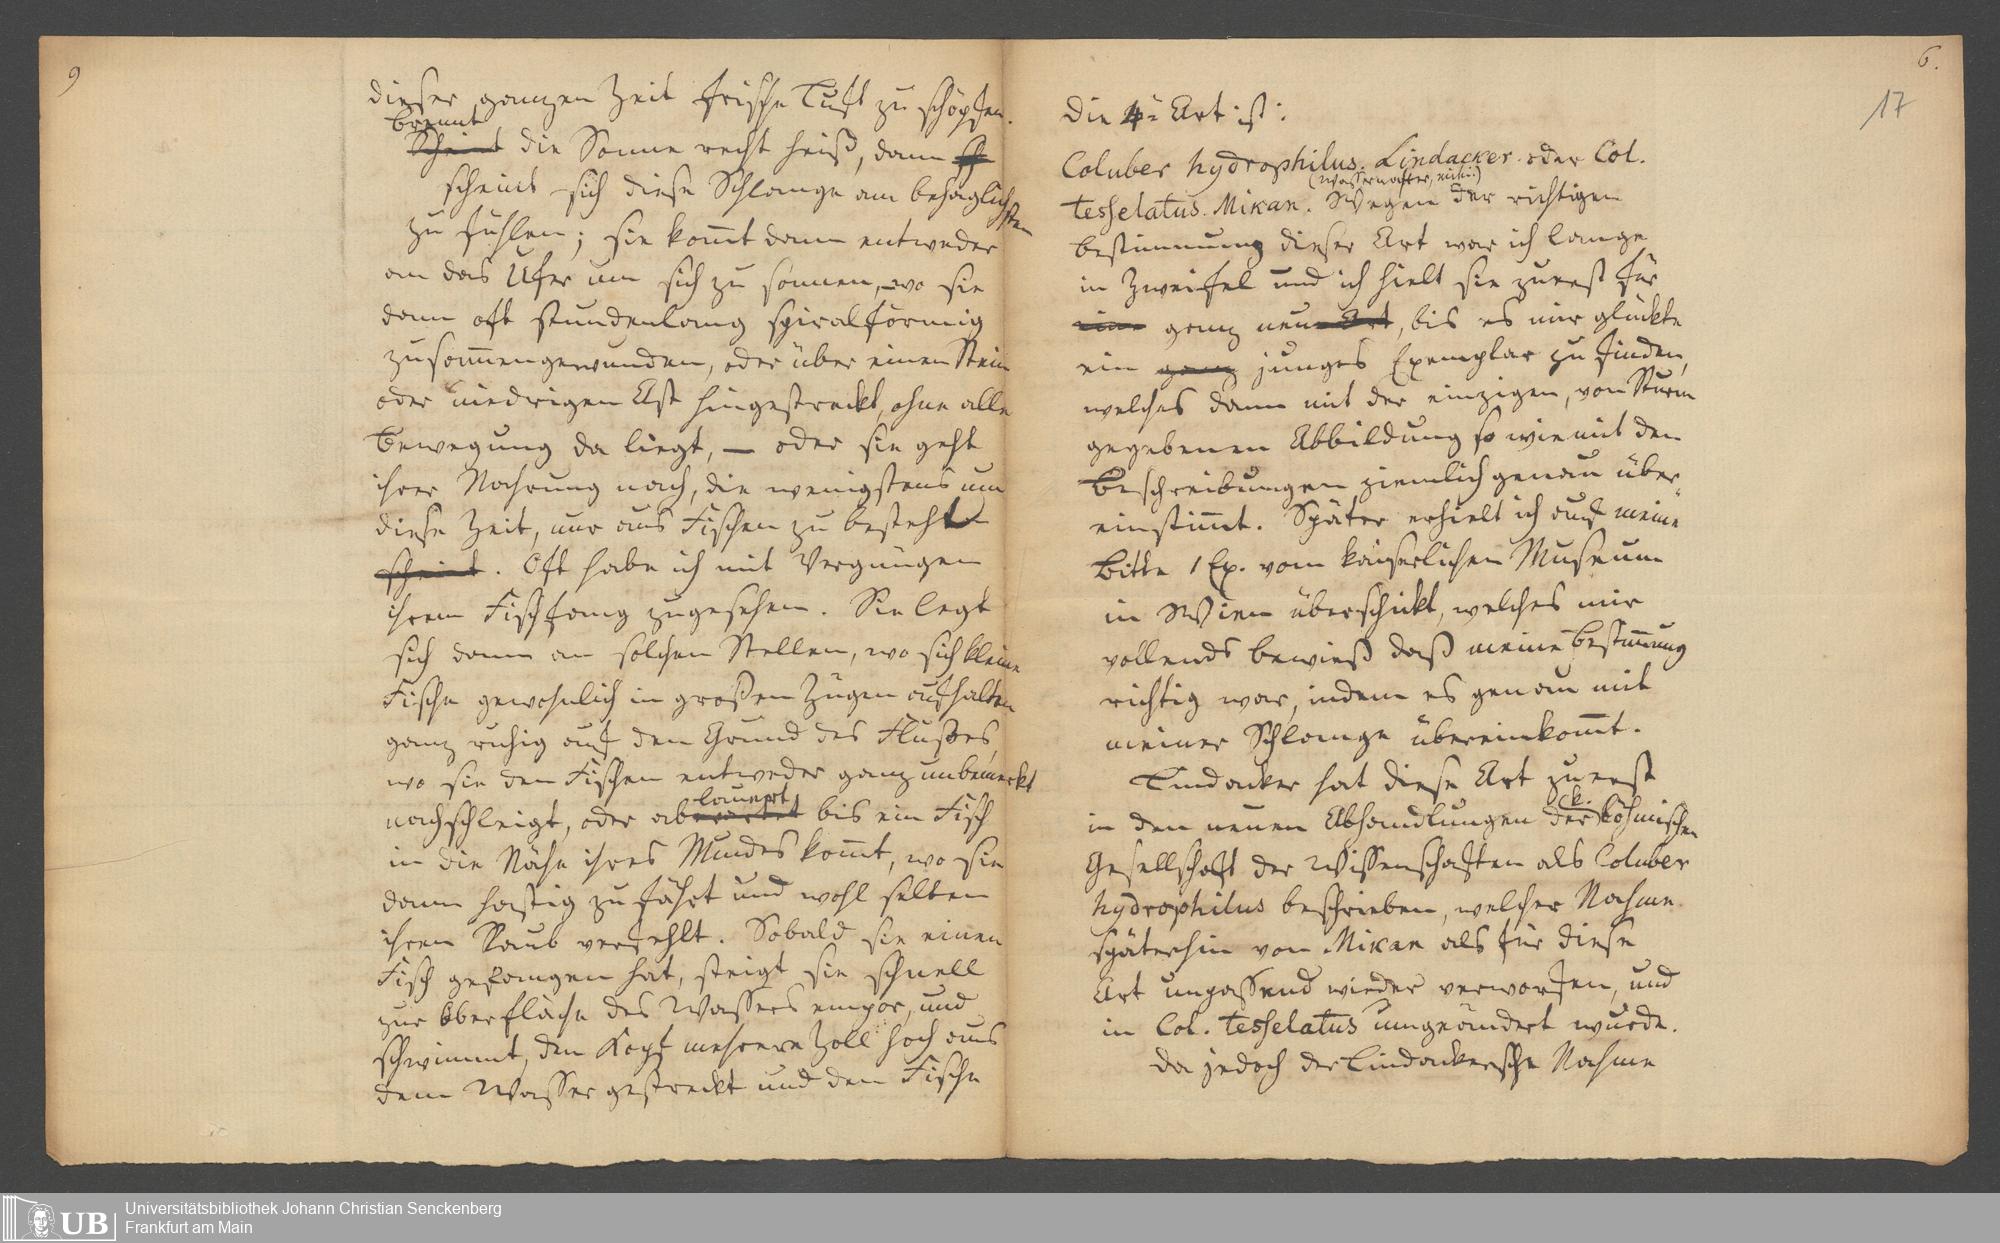 9
dieser ganzen Zeit frische Luft zu schöpfen.
brennt
Scheint die Sonne recht heiß, dann
scheint sich diese Schlange am behaglichsten
zu fühlen; sie kom̄t dann entweder
an das Ufer um sich zu sonnen, wo sie
dann oft stundenlang spiralförmig
zusam̄engewunden, oder über einen Stein
oder niedrigen Ast hingestreckt, ohne alle
Bewegung da liegt, — oder sie geht
ihrer Nahrung nach, die wenigstens um
diese Zeit, nur aus Fischen zu besteht
scheint. Oft habe ich mit Vergnügen
ihrem Fischfang zugesehen. Sie legt
sich dann an solchen Stellen, wo sich kleine
Fische gewohnlich in großen Zügen aufhalten
ganz ruhig auf den Grund des Flußes,
wo sie den Fischen entweder ganz unbemerkt
lauert,
nachschleigt, oder abwartet bis ein Fisch
in die Nähe ihres Mundes kom̄t, wo sie
dann hastig zu fährt und wohl selten
ihren Raub verfehlt. Sobald sie einen
Fisch gefangen hat, steigt sie schnell
zur Oberfläche des Wassers empor, und
schwimmt, den Kopf mehrere Zoll hoch aus
dem Wasser gestreckt und den Fische
6.
17
Die 4te Art ist:
Coluber hydrophilus. Lindacker. oder Col.
(Wassernatter, mihi)
tesselatus. Mikan. Wegen der richtigen
Bestimmung dieser Art war ich lange
in Zweifel und ich hielt sie zuerst für
eine ganz neue Art, bis es mir glückte
ein ganz junges Exemplar zu finden,
welches dann mit der einzigen, von Sturm
gegebenen Abbildung so wie mit den
Beschreibungen ziemlich genau über-
einstim̄t. Später erhielt ich auf meine
Bitte 1 Ex. vom kaiserlichen Museum
in Wien überschickt, welches mir
vollends bewieß daß meine Bestim̄ung
richtig war, indem es genau mit
meiner Schlange übereinkom̄t.
Lindacker hat diese Art zuerst
k.
in den neuen Abhandlungen der böhmischen
Gesellschaft der Wissenschaften als Coluber
hydrophilus beschrieben, welcher Nahme
späterhin von Mikan als für diese
Art unpassend wieder verworfen, und
in Col. tesselatus umgeändert wurde.
Da jedoch der Lindackersche Nahme
Universitätsbibliothek Johann Christian Senckenberg
Frankfurt am Main
UB